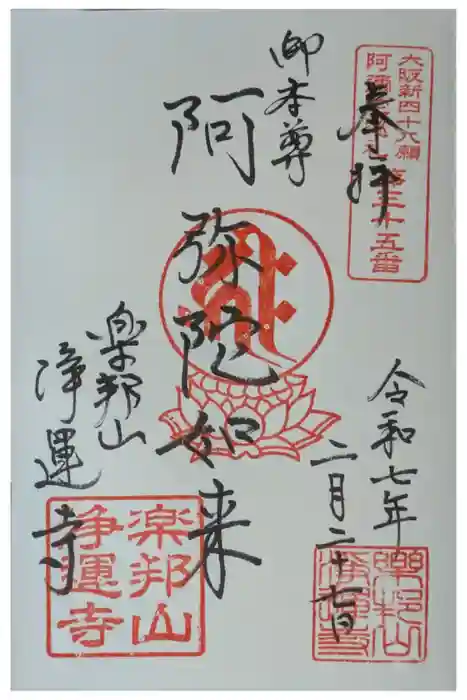 大阪新四十八願
阿彌陀巡礼 第三十五番
奉拝
令和七年
二月二十七日
御本尊
阿弥陀如来
楽邦山
浄運寺
楽邦山
浄運寺
樂邦山